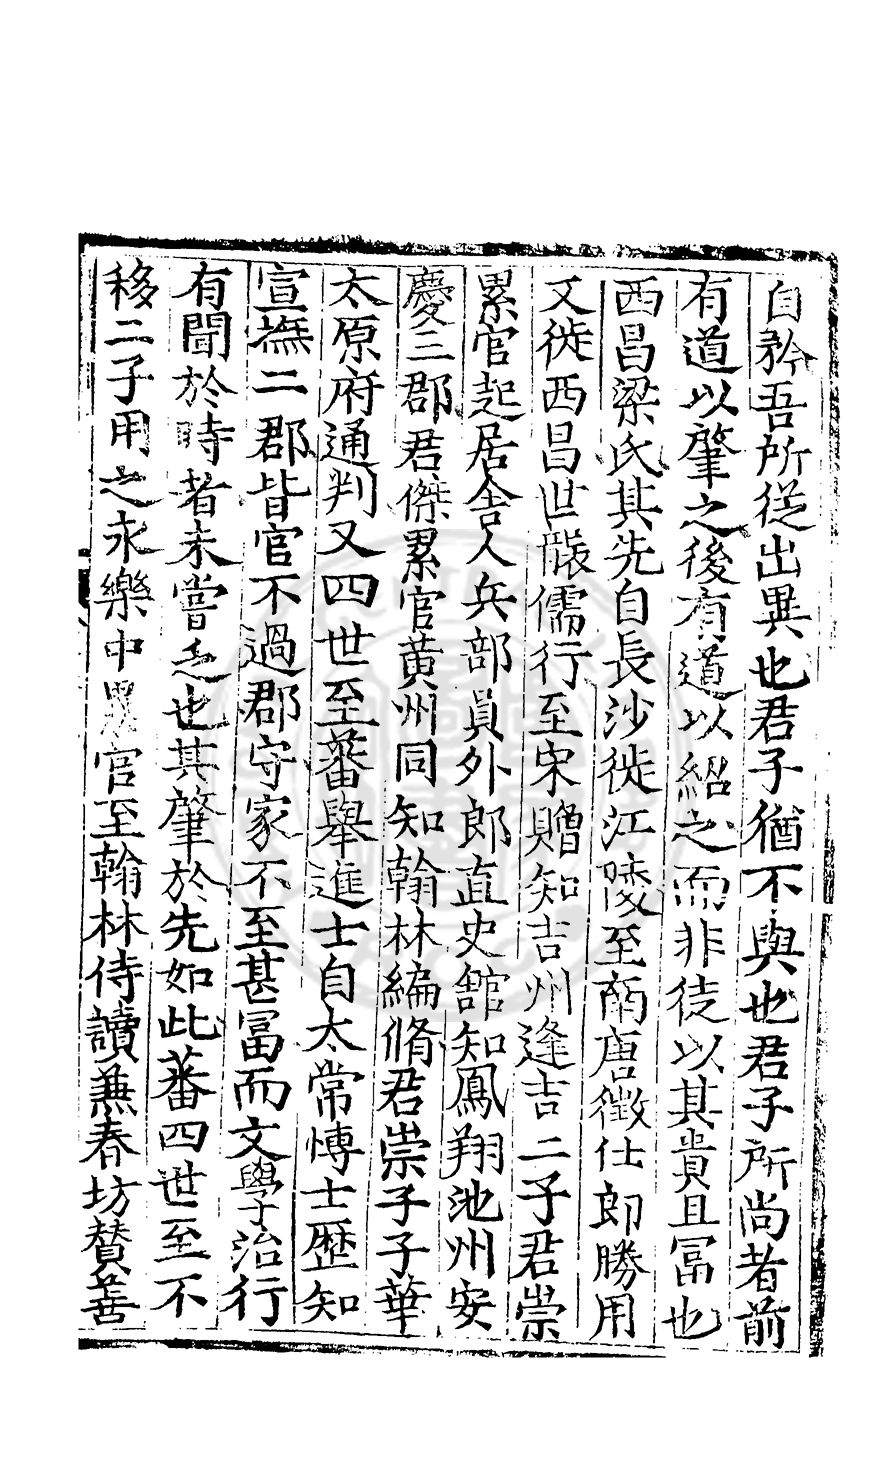 自矜吾所從出異也君子猶不與也君子所尚者前
有道以肇之後有道以紹之而非徒以其貴且冨也
西昌梁氏其先自長沙徙江陵至南唐徵仕郎勝用
又徙西昌世裝儒行至宋贈知吉州逢吉二子君崇
累官起居舎人兵部貟外郎直史舘知鳳翔池州安
慶三郡君傑累官黄州同知翰林編脩君崇子子華
太原府通判又四世至蕃舉進士自太常愽士歷知
宣撫二郡皆官不過郡守家不至甚冨而文學治行
有聞於時者未嘗乏也其肇於先如此蕃四世至不
移二子用之永樂中累官至翰林侍讀兼春坊賛善